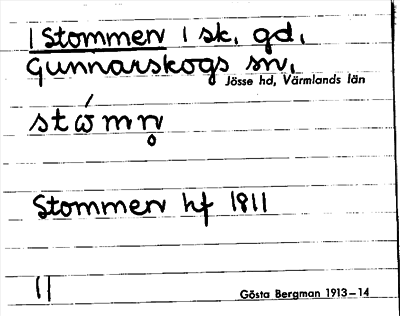 1 Stommen 1 sk. gd.
Gunnarskogs sn.
Jösse hd, Värmlands län
stώmn̥
Stommen hf 1811
11
Gösta Bergman 1913–14